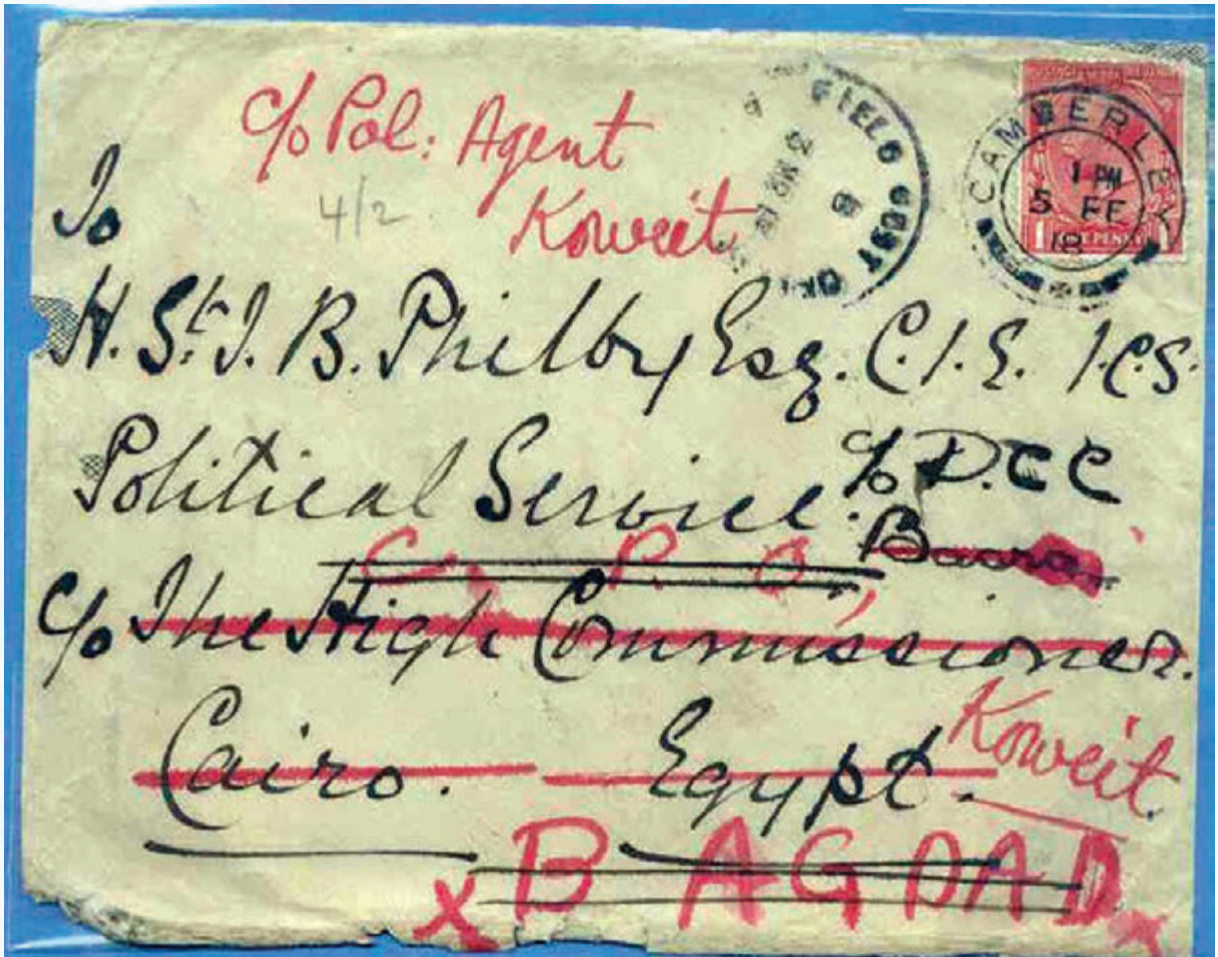 c/o Pol: Agent
Koweit
4/2
FIELD POST
CAMBERLEY
1 PM
5 FE
18
1 ONE PENNY 1
To
H. St. J. B. Philby Esq. C.I.E. I.C.S.
Political Service.
c/o D.C.C
Basra
C. P. O,
c/o The High Commissioner.
Cairo. Egypt.
Koweit
x BAGDAD x